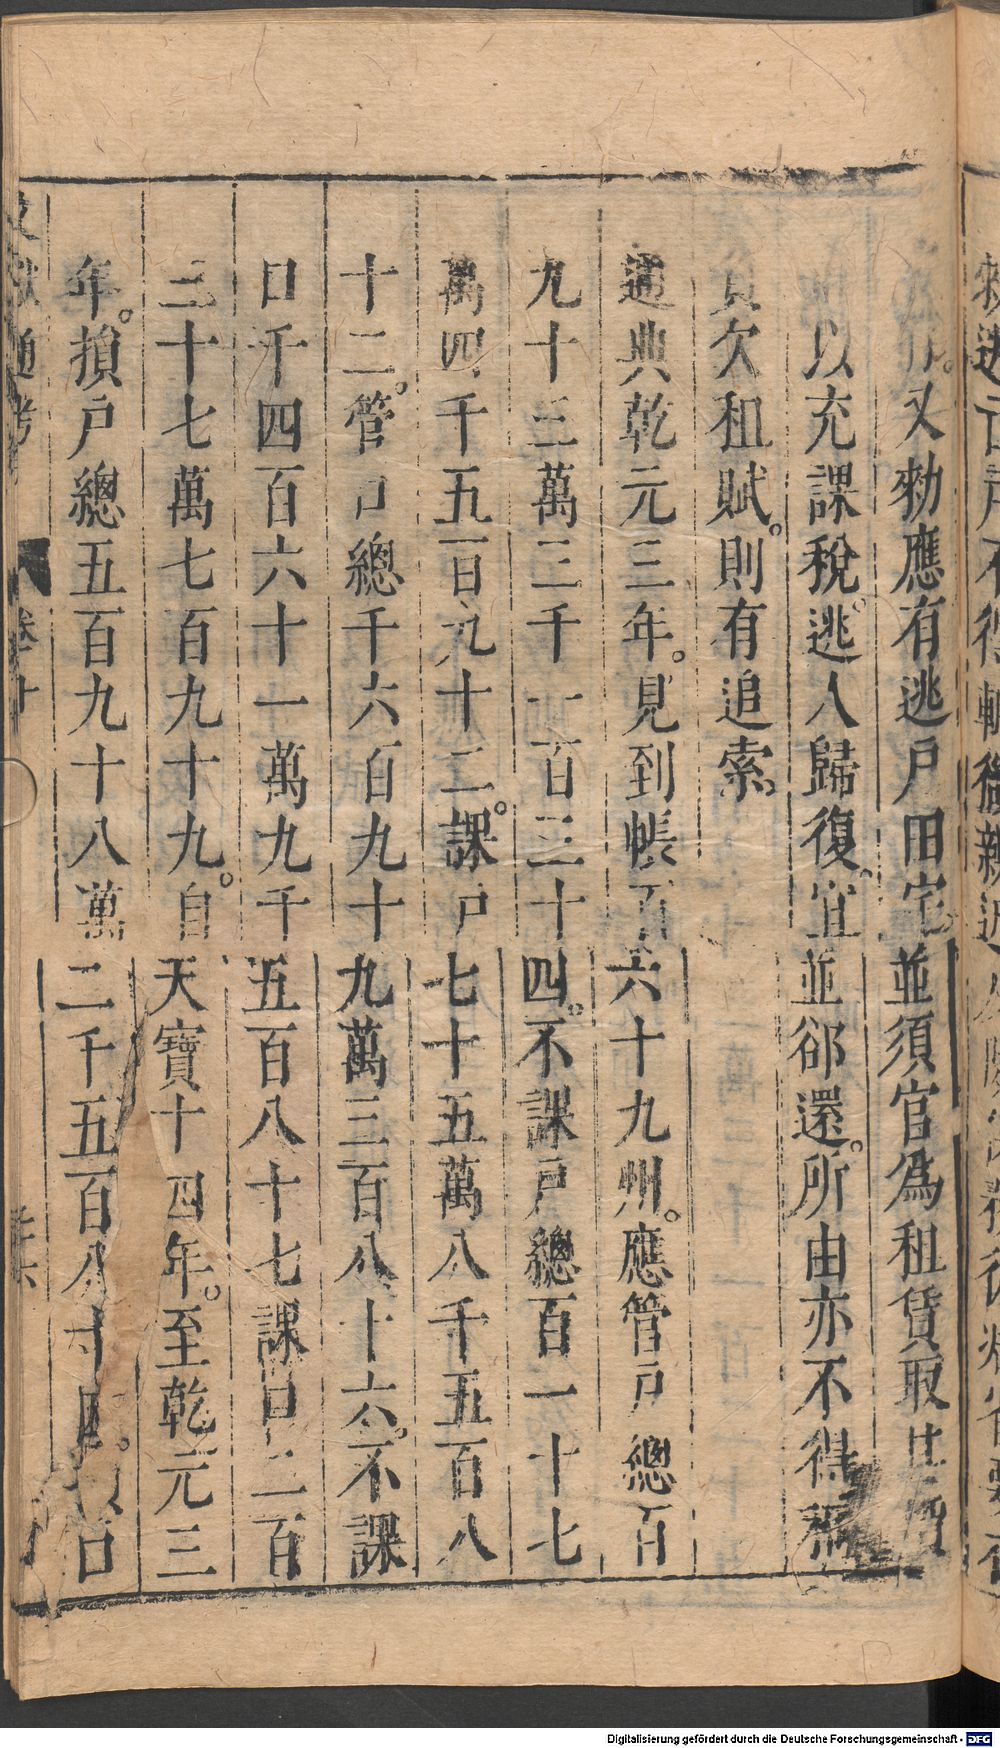 亦。又勑應有逃戶田宅並須官爲租賃取其價
以充課稅。逃人歸復。宜並郤還。所由亦不得稱
負欠租賦。則有追索。
通典乾元三年。見到帳百六十九州。應管戶總百
九十三萬三千一百三十四。不課戶總百一十七
萬四千五百九十二。課戶七十五萬八千五百八
十二。管口總千六百九十九萬三百八十六。不課
口千四百六十一萬九千五百八十七課口二百
三十七萬七百九十九。自天寶十四年。至乾元三
年。損戶總五百九十八萬二千五百八十四。口
文獻通考
卷十
Digitalisierung gefördert durch die Deutsche Forschungsgemeinschaft - DFG